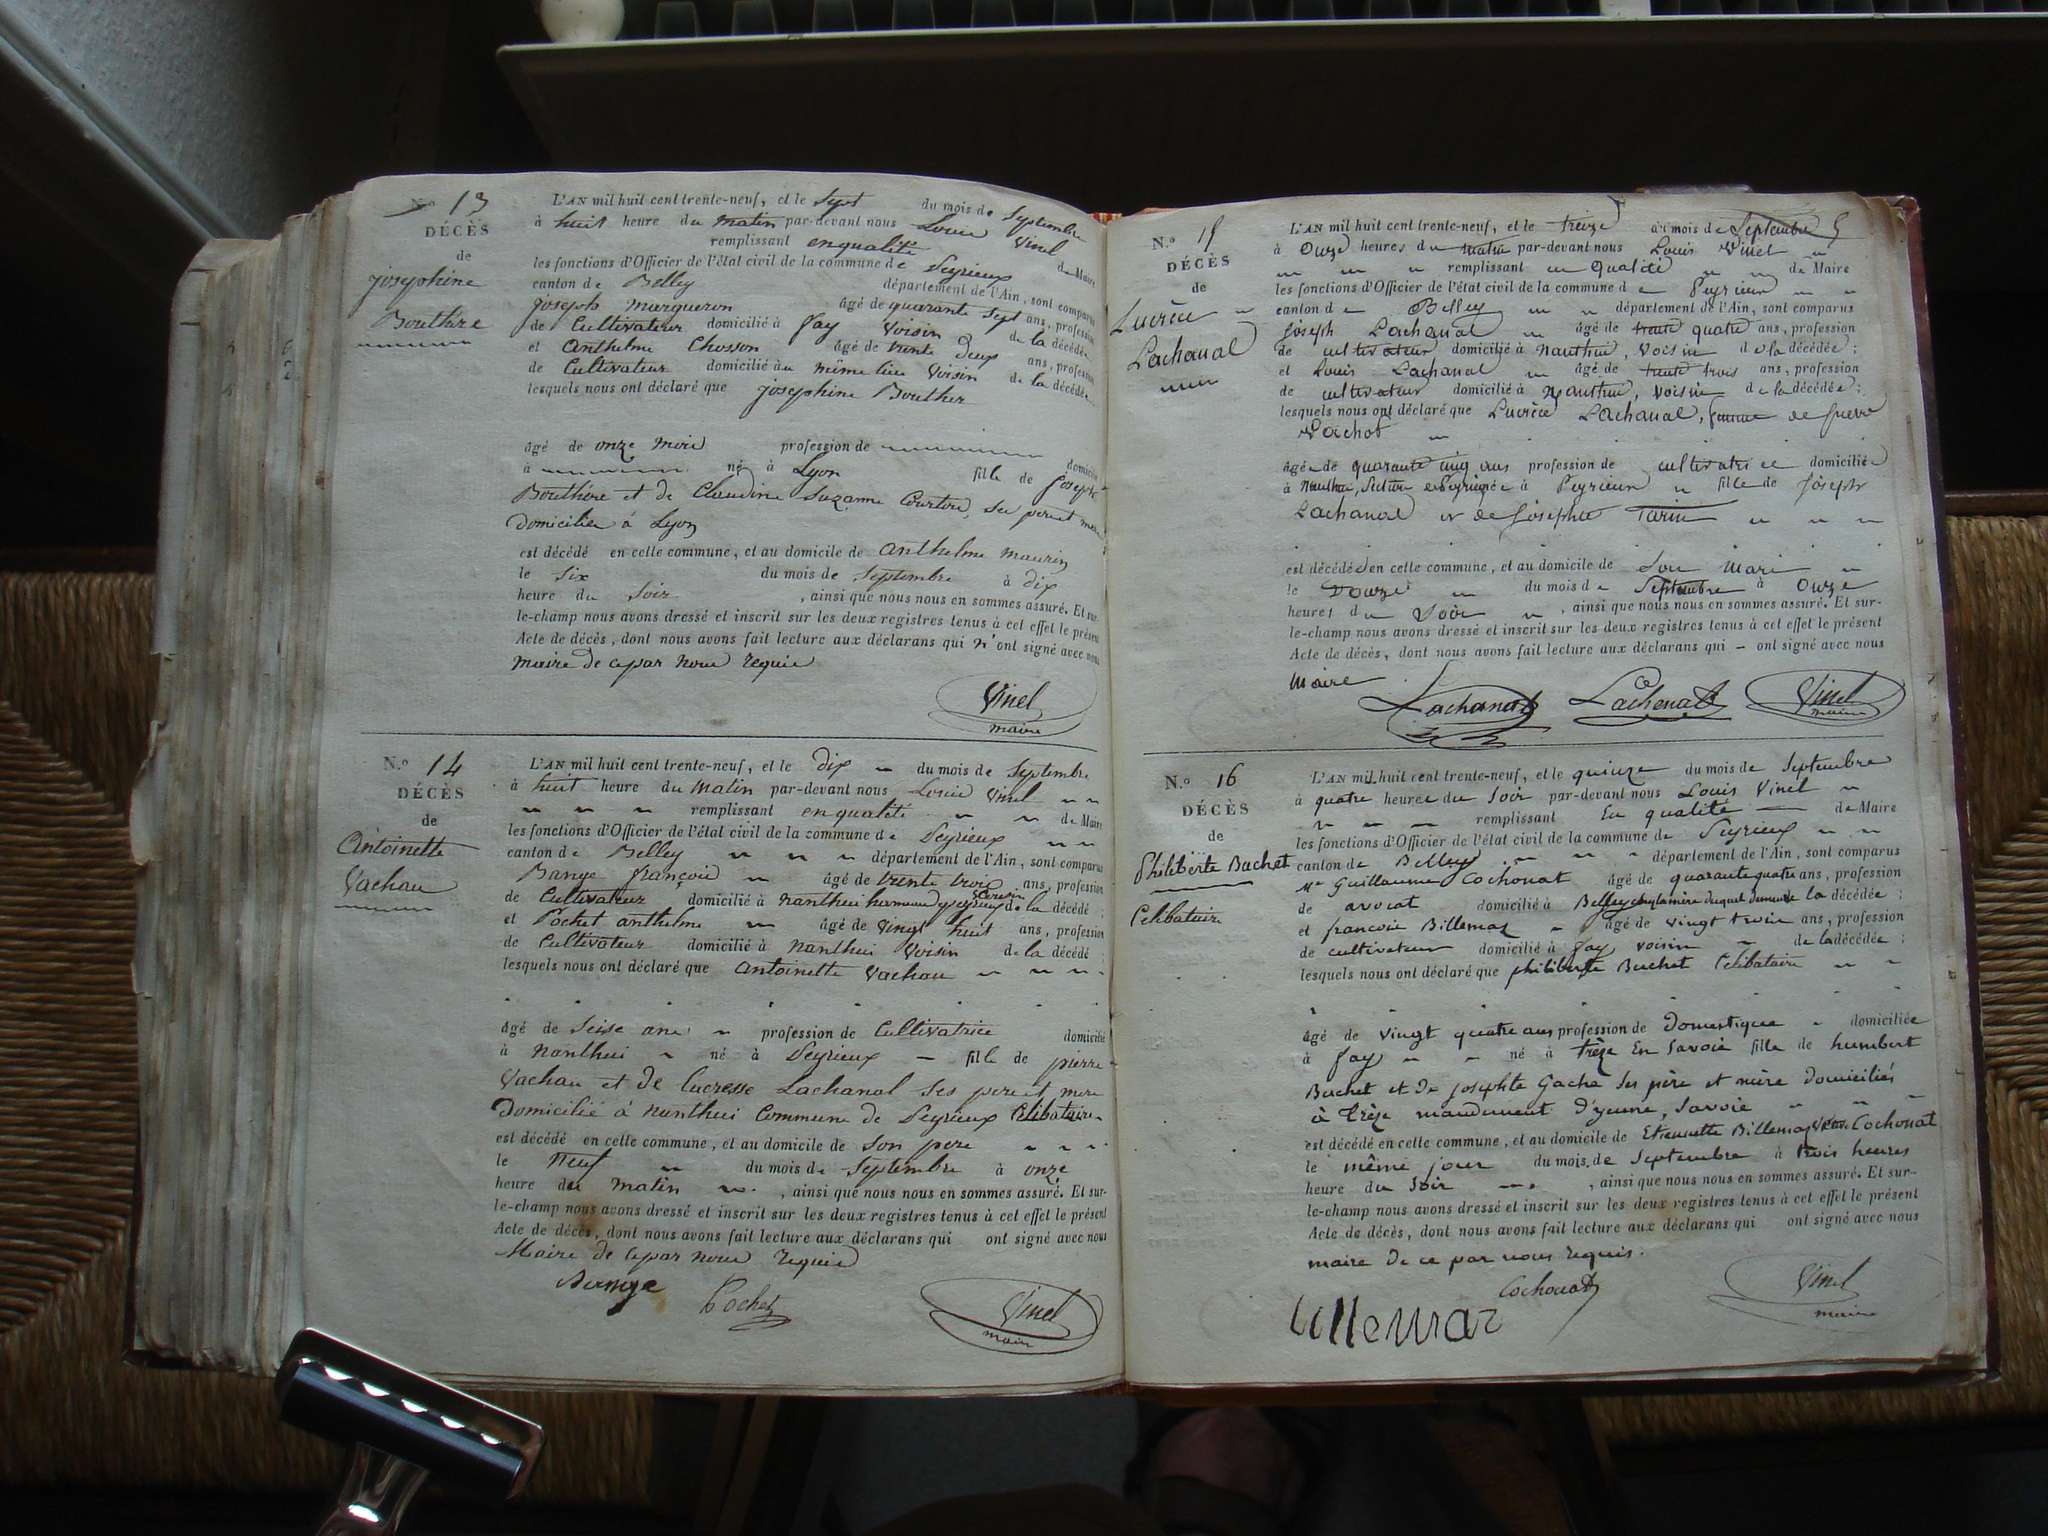 N.o 13
DÉCÈS
de
josephine
Bouthire
L'AN mil huit cent trente-neuf, et le Sept du mois de Septembre
à huit heure du matin par-devant nous Louis Vinel
remplissant en qualité de Maire
les fonctions d'Officier de l'état civil de la commune de Peyrieux
canton de Belley département de l'Ain, sont comparus
joseph Murqueron âgé de quarante Sept ans, profession
de Cultivateur domicilié à fay Voisin de la décédée
et Anthelme Chosson âgé de trente deux ans, profession
de Cultivateur domicilié au même lieu Voisin de la décédée
lesquels nous ont déclaré que josephine Bouthier
âgé de onze mois profession de domicilié
à né à Lyon fille de joseph
Bouthire et de Claudine Suzanne Courtois, ses pere et mere
Domicilies à Lyon
est décédé en celle commune, et au domicile de anthelme maurin
le Six du mois de Septembre à dix
heure du Soir , ainsi que nous nous en sommes assuré. Et sur-
le-champ nous avons dressé et inscrit sur les deux registres tenus à cet effet le présent
Acte de décès, dont nous avons fait lecture aux déclarans qui n'ont signé avec nous
maire de ce par nous requis
Vinel
maire
N.o 14
DÉCÈS
de
Antoinette
Vachau
L'AN mil huit cent trente-neuf, et le Dix du mois de Septembre
à huit heure du Matin par-devant nous Louis Vinel
remplissant en qualité de Maire
les fonctions d'Officier de l'état civil de la commune de Peyrieux
canton de Belley département de l'Ain, sont comparus
Bange françois âgé de trente trois ans, profession
de Cultivateur domicilié à nanthui hameau de peyrieux Voisin de la décédé ;
et Pochet anthelme âgé de vingt huit ans, profession
de Cultivateur domicilié à nanthui Voisin de la décédé ;
lesquels nous ont déclaré que Antoinette Vachau
âgé de Seise ans profession de Cultivatrice domicilié
à nanthui né à Peyrieux fille de pierre
Vachau et de lucresse Lachanal ses pere et mere
Domicilié à nanthui Commune de Peyrieux Célibataire
est décédé en celle commune, et au domicile de son pere
le neuf du mois de Septembre à onze
heure du matin , ainsi que nous nous en sommes assuré. Et sur-
le-champ nous avons dressé et inscrit sur les deux registres tenus à cet effet le présent
Acte de décès, dont nous avons fait lecture aux déclarans qui ont signé avec nous
Maire de ce par nous requis
Bange
Pochet
Vinel
maire
N.o 15
DÉCÈS
de
Lucrèce
Lachanal
L'AN mil huit cent trente-neuf, et le treize du mois de Septembre
à Onze heures du matin par-devant nous Louis Vinel
remplissant en Qualité de Maire
les fonctions d'Officier de l'état civil de la commune de Peyrieux
canton de Belley département de l'Ain, sont comparus
Joseph Lachanal âgé de trente quatre ans, profession
de cultivateur domicilié à nanthui, voisin de la décédée ;
et Louis Lachanal âgé de trente trois ans, profession
de cultivateur domicilié à Nanthui, voisin de la décédée ;
lesquels nous ont déclaré que Lucrèce Lachanal, femme de pierre
Vachot
âgée de quarante cinq ans profession de cultivatrice domiciliée
à Nanthui, née à Peyrieux fille de Joseph
Lachanal et de Josephte Tarin
est décédée en celle commune, et au domicile de Son Mari
le Douze du mois de Septembre à Onze
heures du Soir , ainsi que nous nous en sommes assuré. Et sur-
le-champ nous avons dressé et inscrit sur les deux registres tenus à cet effet le présent
Acte de décès, dont nous avons fait lecture aux déclarans qui – ont signé avec nous
Maire
Lachanal Lachenal Vinel
maire
N.o 16
DÉCÈS
de
Philiberte Buchet
Celibataire
L'AN mil huit cent trente-neuf, et le quinze du mois de Septembre
à quatre heures du Soir par-devant nous Louis Vinel
remplissant En qualité de Maire
les fonctions d'Officier de l'état civil de la commune de Peyrieux
canton de Belley département de l'Ain, sont comparus
Me Guillaume Cochonat âgé de quarante quatre ans, profession
de avocat domicilié à Belley la décédée ;
et francois Billemaz âgé de vingt trois ans, profession
de cultivateur domicilié à fay voisin de la décédée ;
lesquels nous ont déclaré que philiberte Buchet Célibataire
âgé de vingt quatre ans profession de Domestique domiciliée
à fay né à trèze En Savoie fille de humbert
Buchet et de josephte Gache Ses père et mère domiciliés
à trèze mandement d'yenne, Savoie
est décédé en celle commune, et au domicile de Etiennette Billemaz Veuve Cochonat
le même jour du mois de Septembre à trois heures
heure du Soir , ainsi que nous nous en sommes assuré. Et sur-
le-champ nous avons dressé et inscrit sur les deux registres tenus à cet effet le présent
Acte de décès, dont nous avons fait lecture aux déclarans qui ont signé avec nous
maire de ce par nous requis.
Cochonat
billemaz
Vinel
maire